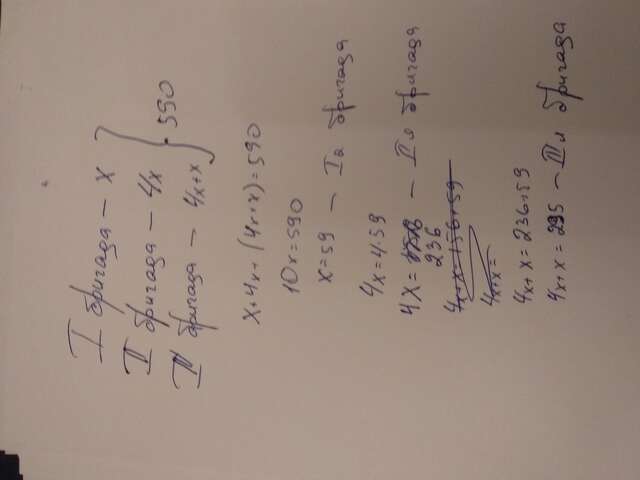 I бригада – x
II бригада – 4x
III бригада – 4x+x } 590
x+4x+(4x+x)=590
10x=590
x=59 – Iа бригада
4x=4·59
4x=236 – IIя бригада
4x+x=236+59
4x+x=295 – IIIя бригада